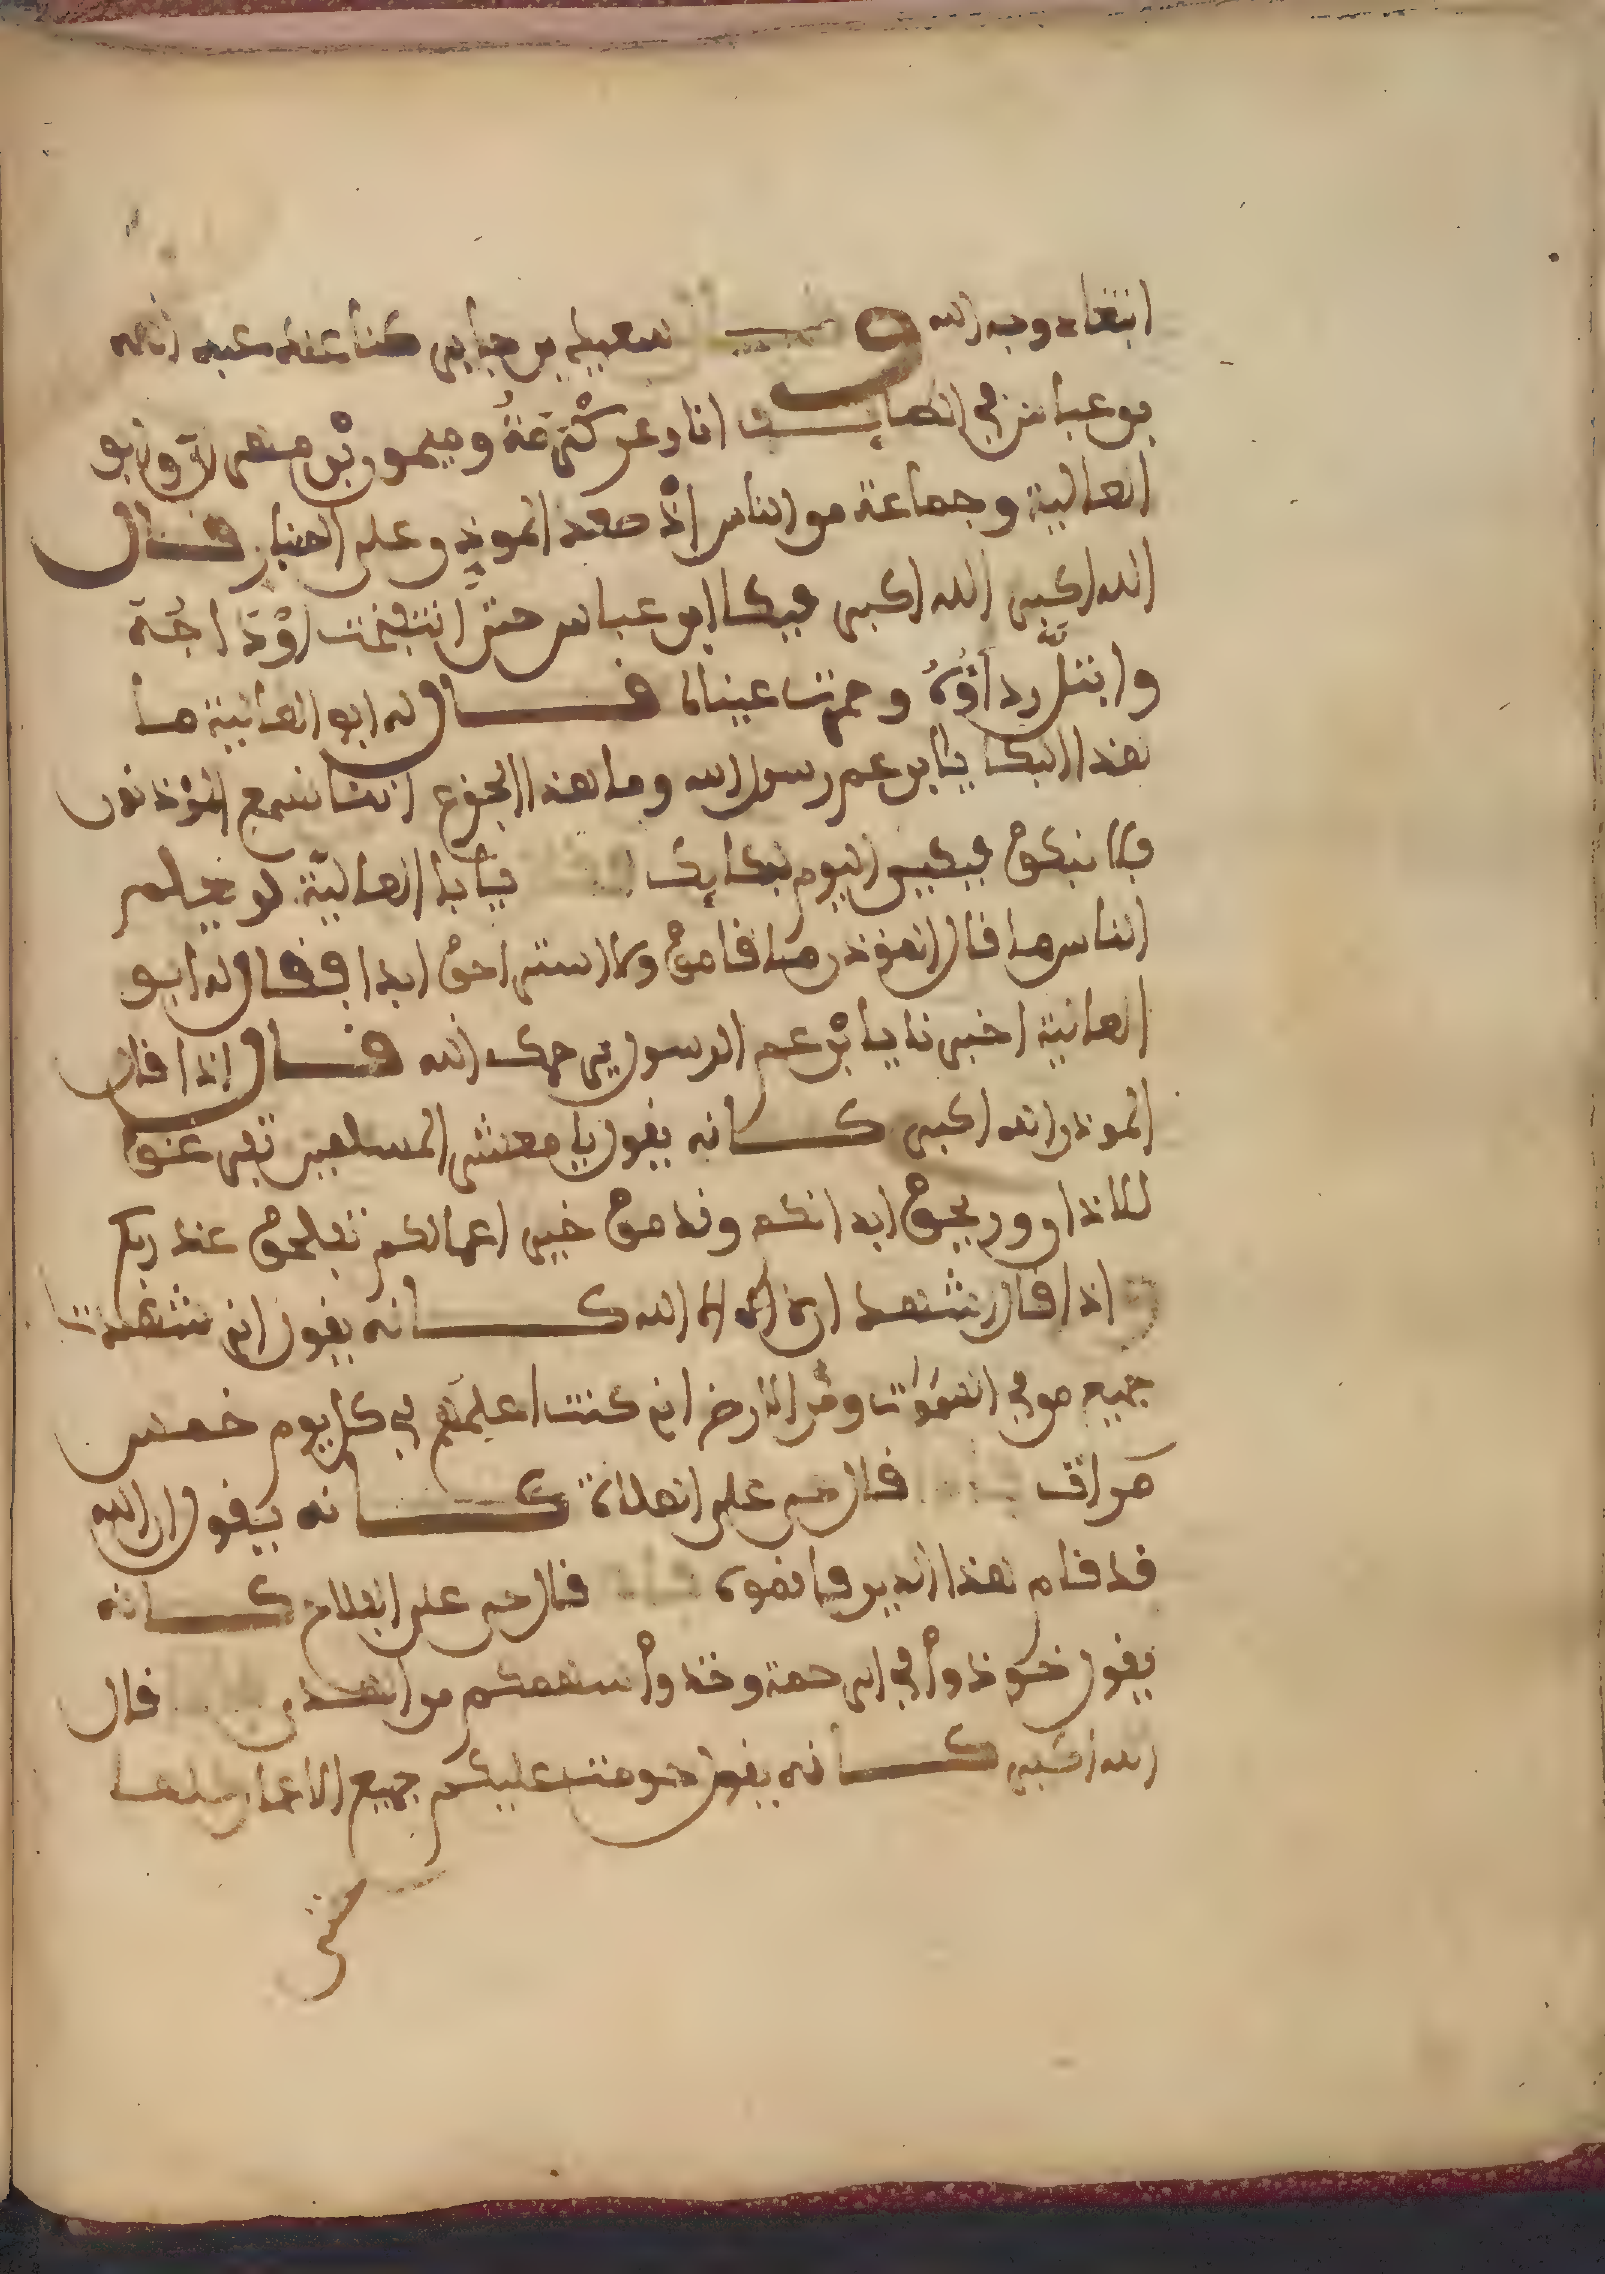 ابتغاء وجه الله سعيد بن جابر كنا عند عبد الله
بن عباس في الطايف انا وعن كثرمة وميمون بن مهران وابو
العالية وجماعة من الناس اذ صعد الموذن على المنار فقال
الله اكبر الله اكبر فبكا ابن عباس حتى انتفخت اوداجه
وابتل رداؤه وحمرت عيناه فقال له ابو العالية ما
هذا البكا يا ابن عم رسول الله وما هذا الجزع اننا نسمع الموذنون
فلا نبكون فبكين اليوم لبكايك يا ابا العالية لو يعلم
الناس ما قال الموذن ما قامون ولا استراحون ابدا فقال له ابو
العالية اخبرنا يا بن عم الرسول يرحمك الله فقال اذا قال
الموذن الله اكبر كانه يقول يا معشر المسلمين تفرغوا
للاذان وريحون ابدانكم وقدمون خير اعمالكم تفلحون عند ربكم
اذا قال اشهد ان لا اله الا الله كانه يقول اني شهدت
جميع من في السموات ومن الارض اني كنت اعلمتهم في كل يوم خمس
مرات قال حي على الصلاة كانه يقول ان الله
قد قام هذا الدين فاقموه قال حي على الفلاح كانه
يقول خوذوا في الرحمة وخذوا سهمكم من الهدى قال
الله اكبر كانه يقول حرمت عليكم جميع الاعمال كلها
حتى